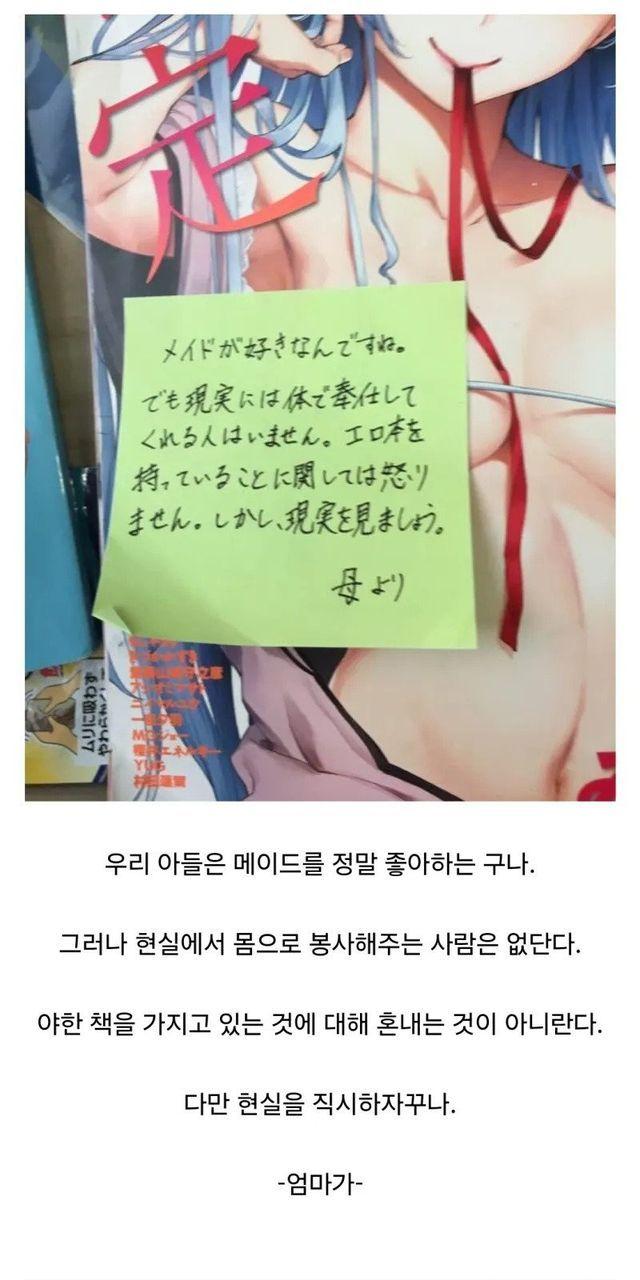 定
メイドが好きなんですね。
でも現実には体で奉仕して
くれる人はいません。エロ本を
持っていることに関しては怒り
ません。しかし、現実を見ましょう。
母より
ムリに吸わず
MGジョー
YUG
우리 아들은 메이드를 정말 좋아하는 구나.
그러나 현실에서 몸으로 봉사해주는 사람은 없단다.
야한 책을 가지고 있는 것에 대해 혼내는 것이 아니란다.
다만 현실을 직시하자꾸나.
-엄마가-